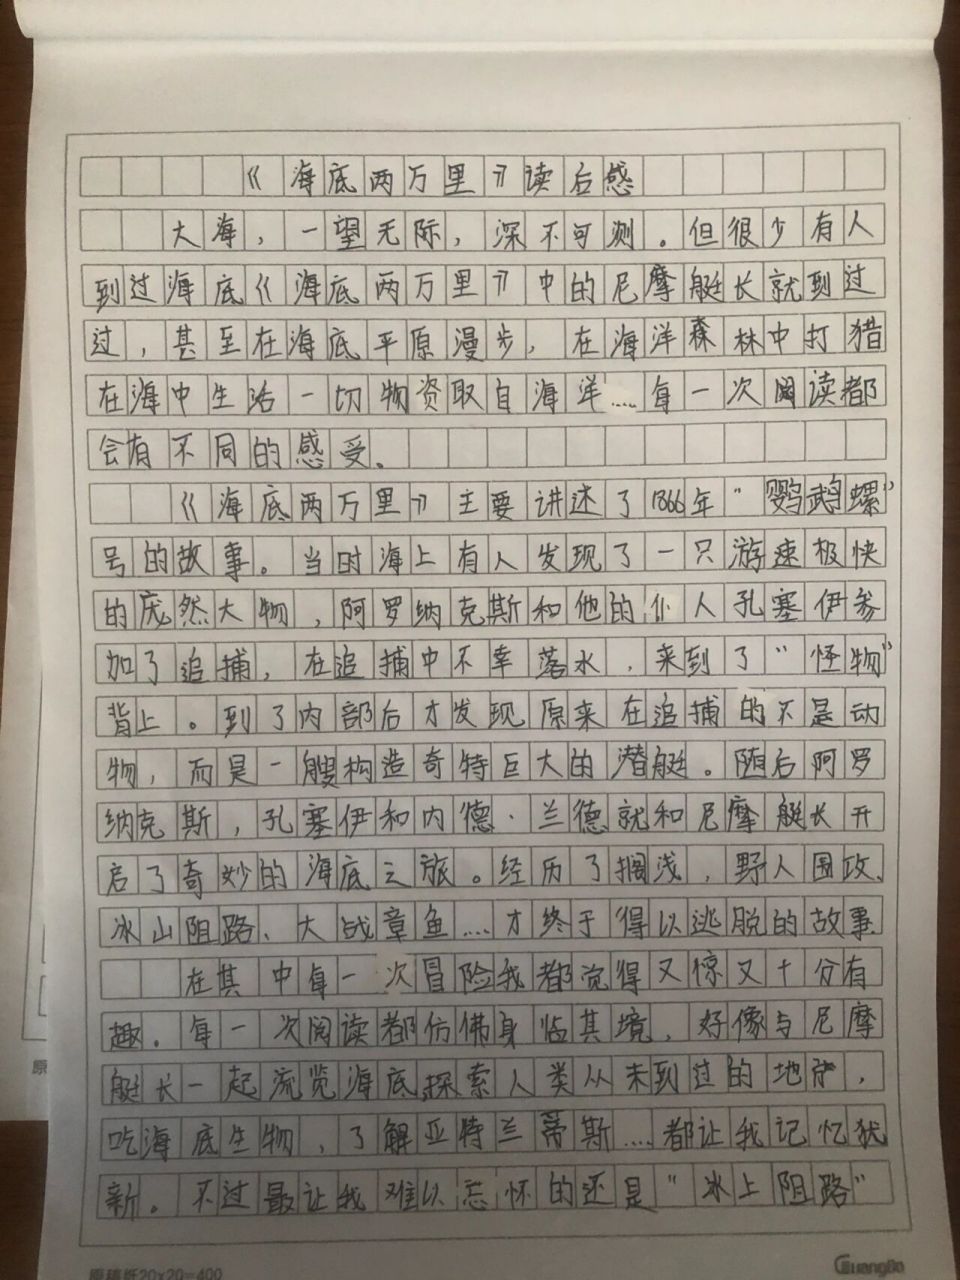 《海底两万里》读后感
大海，一望无际，深不可测。但很少有人
到过海底《海底两万里》中的尼摩艇长就到过
过，甚至在海底平原漫步，在海洋森林中打猎
在海中生活一切物资取自海洋....每一次阅读都
会有不同的感受。
《海底两万里》主要讲述了1866年"鹦鹉螺"
号的故事。当时海上有人发现了一只游速极快
的庞然大物，阿罗纳克斯和他的仆人孔塞伊参
加了追捕，在追捕中不幸落水，来到了"怪物"
背上。到了内部后才发现原来在追捕的不是动
物，而是一艘构造奇特巨大的潜艇。随后阿罗
纳克斯，孔塞伊和内德·兰德就和尼摩艇长开
启了奇妙的海底之旅。经历了搁浅，野人围攻、
冰山阻路、大战章鱼....才终于得以逃脱的故事
在其中每一次冒险我都觉得又惊又十分有
趣。每一次阅读都仿佛身临其境，好像与尼摩
艇长一起流览海底，探索人类从未到过的地，
吃海底生物，了解亚特兰蒂斯....都让我记忆犹
新。不过最让我难以忘怀的还是"冰上阻路"
原稿纸20×20=400
GuangBo
原